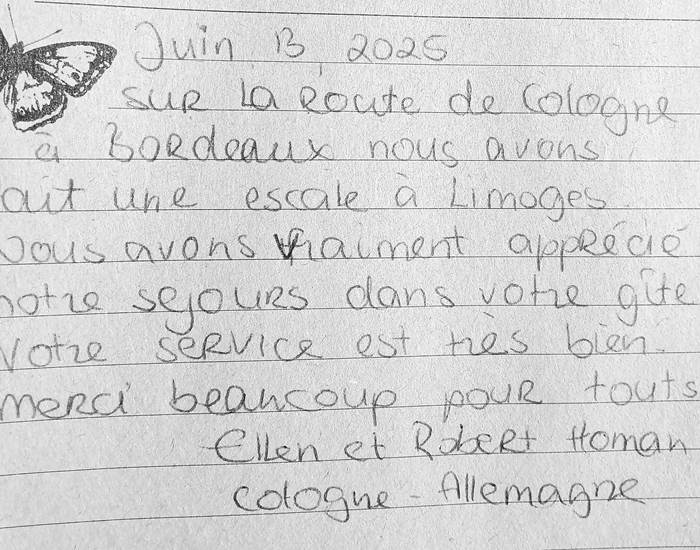 Juin 13, 2025
sur la Route de Cologne
à Bordeaux nous avons
ait une escale à Limoges.
Nous avons vraiment apprécié
notre sejours dans votre gîte
Votre service est très bien.
merci beaucoup pour touts
Ellen et Robert Homan
Cologne - Allemagne